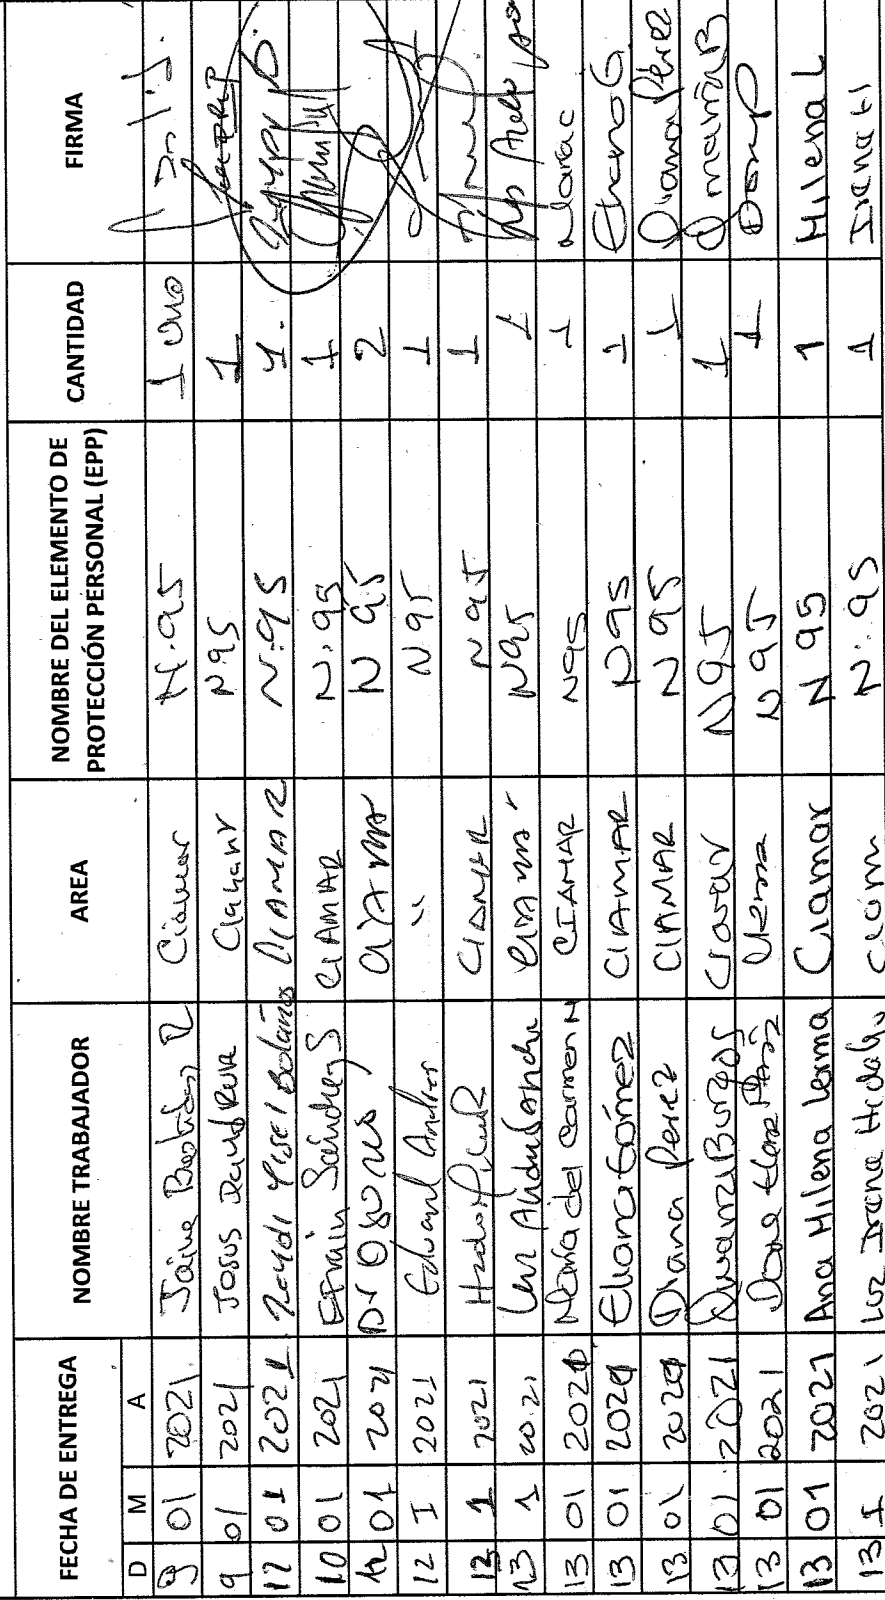 FECHA DE ENTREGA NOMBRE TRABAJADOR AREA NOMBRE DEL ELEMENTO DE PROTECCIÓN PERSONAL (EPP) CANTIDAD FIRMA
D M A
9 01 2021 Jaime Bastidas R Ciamar N.95 1 uno
9 01 2021 N95 1
12 01 2021 Yisel Bolaños CIAMAR N.95 1.
10 01 2021 Efrain Sanchez S CIAMAR N.95 1
12 01 2021 N95 2
12 I 2021 Eduard Andres " N95 1
13 1 2021 CIAMAR N95 1
13 1 2021 N95 1
13 01 2021 Maria del Carmen N CIAMAR N95 1 Maria C
13 01 2021 Eliana Gómez CIAMAR N95 1 Eliana G
13 01 2021 Diana Perez CIAMAR N95 1 Diana Pérez
13 01 2021 Burgos N95 1
13 01 2021 N95 1
13 01 2021 Ana Milena Lerma Ciamar N95 1 Milena L
13 I 2021 Luz Irena Hidalgo Ciam N.95 1 Irena H